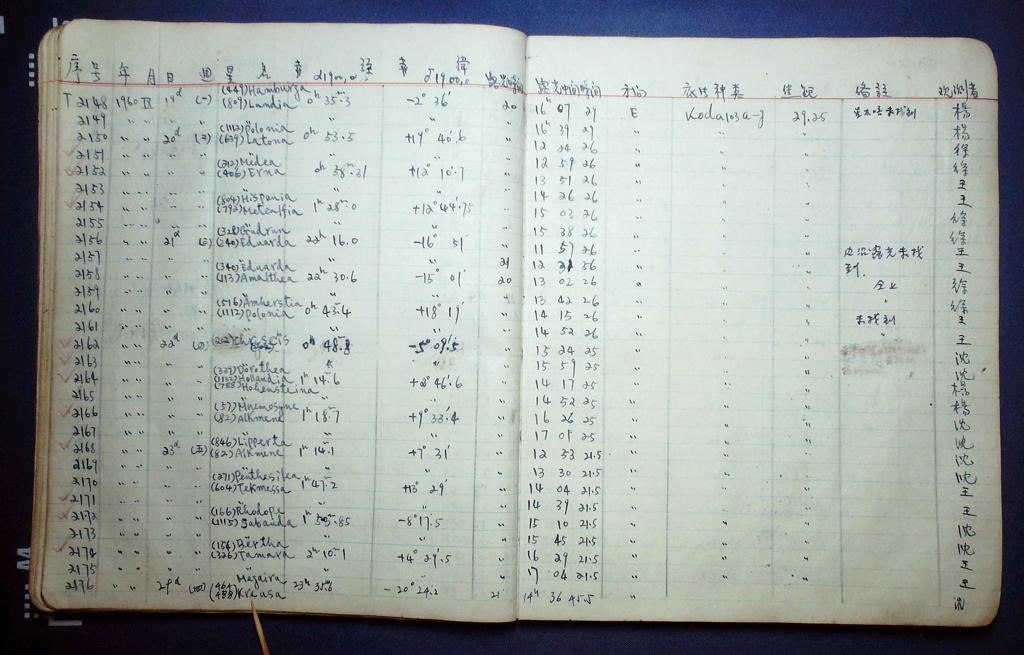 序号 年 月 日 週 星 名 赤 经 α1900.0 赤 緯 δ1900.0 露光时间 露光中间时间 底片种类 焦距 備註 观测者
(449) Hamburga
T 2148 1960 IX 19d (一) (809) Lundia 0h 35m.3 -2° 36' 20 16h 07 27 E Koda103a-J 29.25 楊
2149 〃 〃 〃 〃 〃 〃 16h 39 27 〃 〃 〃 楊
(1112) Polonia
2150 〃 〃 20d (二) (639) Latona 0h 53.5 +19° 40'.6 〃 12 24 26 〃 〃 〃 徐
2151 〃 〃 〃 〃 〃 〃 12 59 26 〃 〃 〃 徐
(212) Medea
2152 〃 〃 〃 (406) Erna 0h 58.31 +12° 10'.7 〃 13 51 26 〃 〃 〃 王
2153 〃 〃 〃 〃 〃 〃 14 26 26 〃 〃 〃 王
(804) Hispania
2154 〃 〃 〃 (792) Metcalfia 1h 28m.0 +12° 44'.75 〃 15 03 26 〃 〃 〃 徐
2155 〃 〃 〃 〃 〃 〃 15 38 26 〃 〃 〃 徐
(328) Gudrun
2156 〃 〃 21d (三) (340) Eduarda 22h 16.0 -16° 51' 〃 11 57 26 〃 〃 〃 王
2157 〃 〃 〃 〃 〃 21 12 31 56 〃 〃 〃 王
(340) Eduarda
2158 〃 〃 〃 (113) Amalthea 22h 30.6 -15° 01' 20 13 02 26 〃 〃 〃 徐
2159 〃 〃 〃 〃 〃 〃 13 42 26 〃 〃 〃 徐
(516) Amherstia
2160 〃 〃 〃 (1112) Polonia 0h 43m.4 +18° 19' 〃 14 15 26 〃 〃 〃 未找到 王
2161 〃 〃 〃 〃 〃 〃 14 52 26 〃 〃 〃 〃 王
2162 〃 〃 22d (202) Chryseis 0h 48.8 -5° 09'.5 〃 15 24 25 〃 〃 〃 沈
2163 〃 〃 〃 〃 〃 〃 15 59 25 〃 〃 〃 沈
(339) Dorothea
2164 〃 〃 〃 (1132) Hollandia 1h 14m.6 +2° 46'.6 〃 14 17 25 〃 〃 〃 楊
(788) Hohensteina
2165 〃 〃 〃 〃 〃 14 52 25 〃 〃 〃 楊
(57) Mnemosyne
2166 〃 〃 〃 (82) Alkmene 1h 18m.7 +9° 33'.4 〃 16 26 25 〃 〃 〃 沈
2167 〃 〃 〃 〃 〃 〃 17 01 25 〃 〃 〃 沈
(846) Lipperta
2168 〃 〃 23d (五) (82) Alkmene 1h 14m.1 +7° 31' 〃 12 53 21.5 〃 〃 〃 沈
2169 〃 〃 〃 〃 〃 〃 13 30 21.5 〃 〃 〃 沈
(271) Penthesilea
2170 〃 〃 〃 (604) Tekmessa 1h 47.2 +13° 29' 〃 14 04 21.5 〃 〃 〃 王
2171 〃 〃 〃 〃 〃 〃 14 39 21.5 〃 〃 〃 王
(166) Rhodope
2172 〃 〃 〃 (1115) Sabauda 1h 55m.85 -8° 17'.5 〃 15 10 21.5 〃 〃 〃 沈
2173 〃 〃 〃 〃 〃 〃 15 45 21.5 〃 〃 〃 沈
(154) Bertha
2174 〃 〃 〃 (326) Tamara 2h 10m.1 +4° 29'.5 〃 16 29 21.5 〃 〃 〃 王
2175 〃 〃 〃 〃 〃 〃 17 04 21.5 〃 〃 〃 王
(464) Megaira
2176 〃 〃 29d (四) (488) Kreusa 23h 35m.6 -20° 24'.2 21 14h 36 45.5 〃 〃 〃 沈